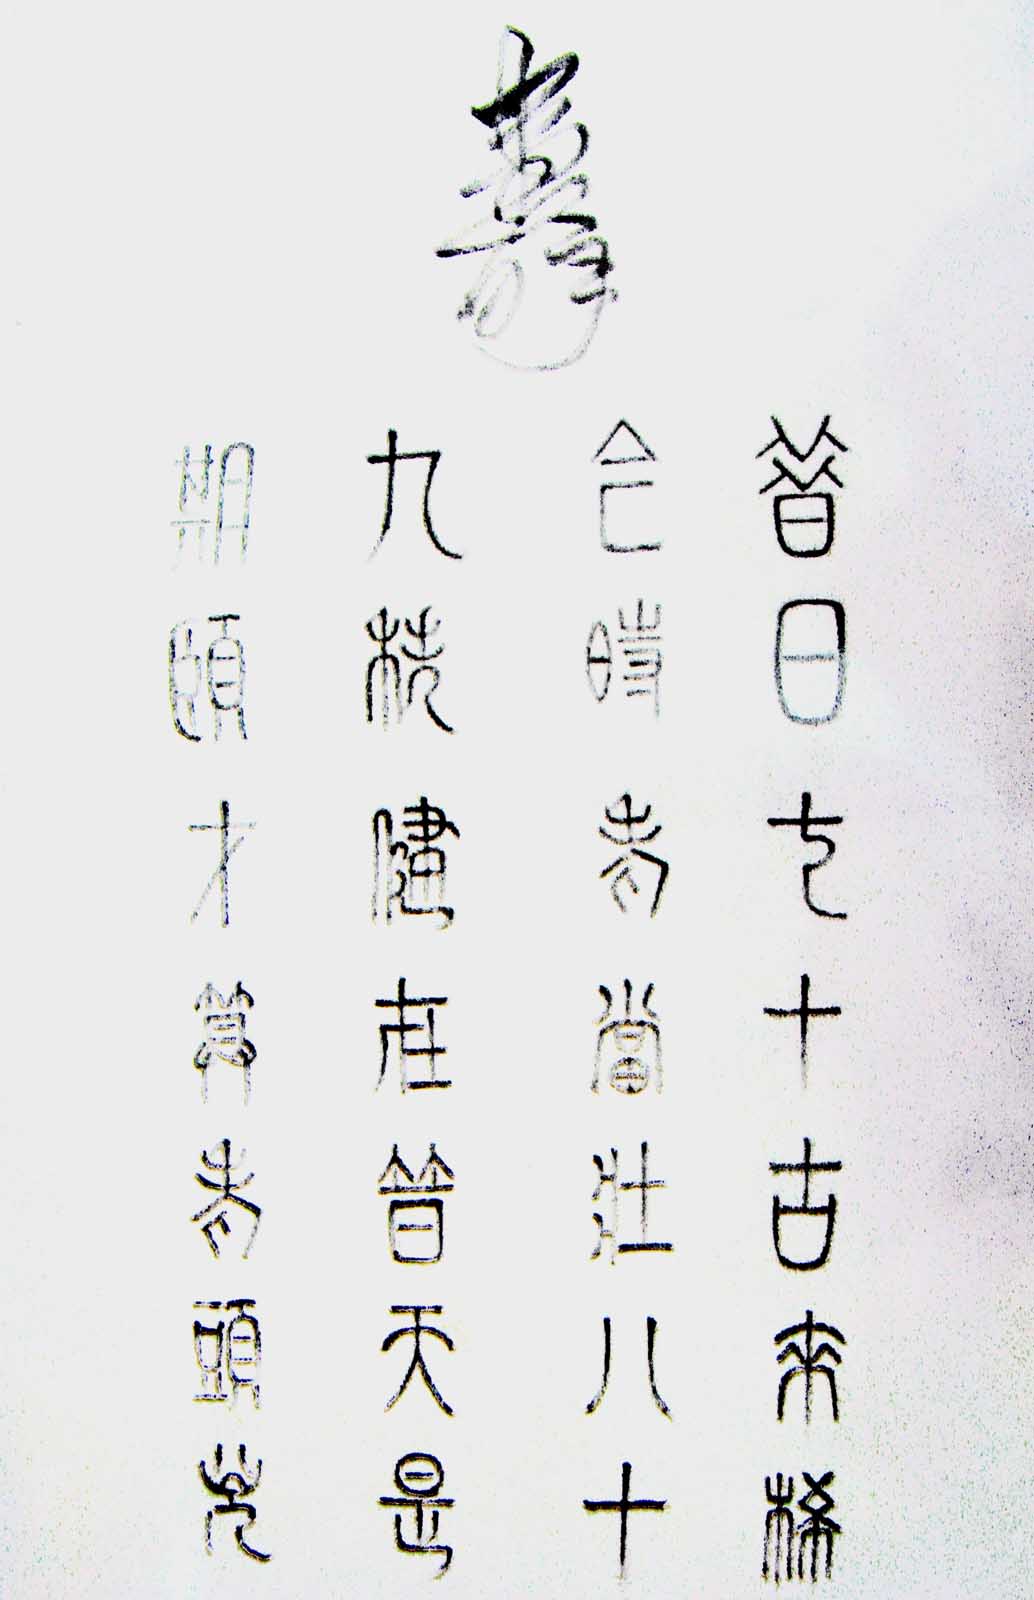 壽
昔日七十古來稀
今時老當壯八十
九秩健在普天是
期頤才算老頭兒